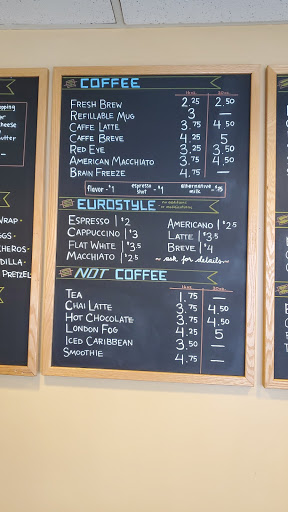 COFFEE
12oz. 20oz.
FRESH BREW 2.25 2.50
REFILLABLE MUG 3 —
CAFFE LATTE 3.75 4.50
CAFFE BREVE 4.25 5
RED EYE 3.25 3.50
AMERICAN MACCHIATO 3.75 4.50
BRAIN FREEZE 4.75 —
flavor - $1 espresso shot - $1 alternative milk .75
EUROSTYLE
ESPRESSO | $2
CAPPUCCINO | $3
FLAT WHITE | $3.5
MACCHIATO | $2.5
AMERICANO | $2.5
LATTE | $3.5
BREVE | $4
~ ask for details ~
NOT COFFEE
12oz. 20oz.
TEA 1.75 —
CHAI LATTE 3.75 4.50
HOT CHOCOLATE 3.75 4.50
LONDON FOG 4.25 5
ICED CARIBBEAN 3.50 —
SMOOTHIE 4.75 —
topping
cheese
WRAP -
GGS -
CHEROS -
DILLA -
PRETZEL